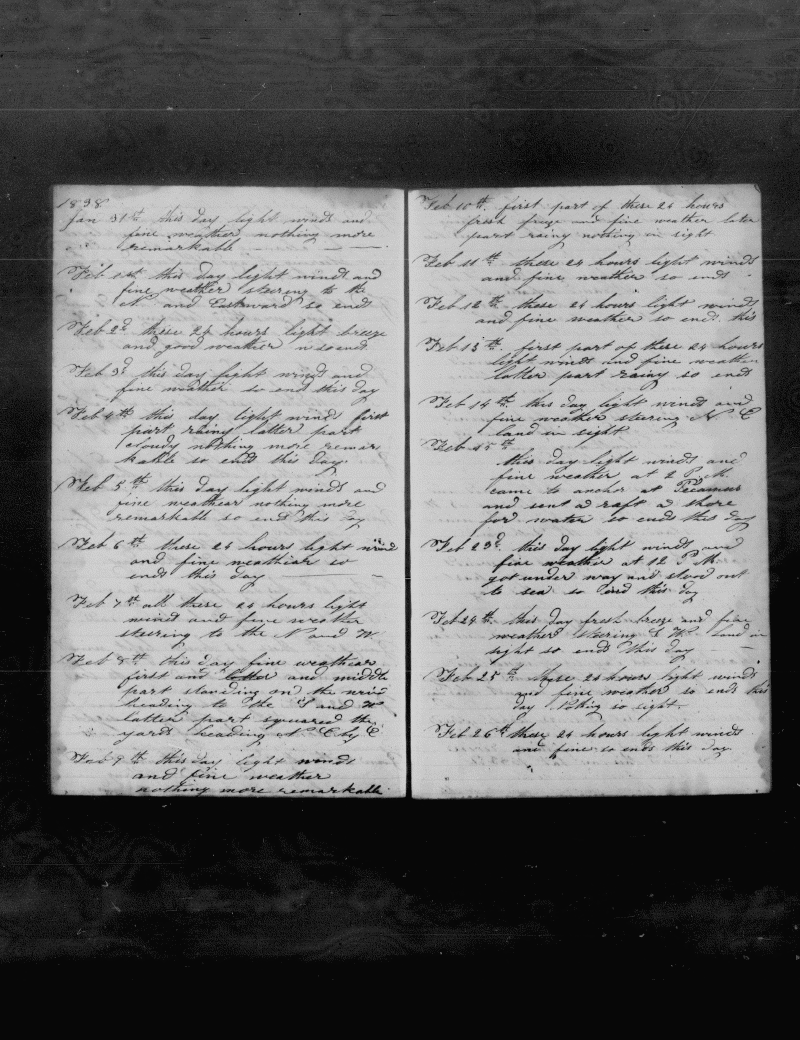 1838
Jan 31st this day light winds and
fine weather nothing more
remarkable
Feb 1st this day light winds and
fine weather steering to the
N and Eastward so ends
Feb 2d these 24 hours light breeze
and good weather so ends
Feb 3d this day light winds and
fine weather so end this day
Feb 4th this day light winds first
part rainy latter part
cloudy nothing more remar
kable so ends this day
Feb 5th this day light winds and
fine weathear nothing more
remarkable so end this day
Feb 6th these 24 hours light wind
and fine weathear so
ends this day
Feb 7th all these 24 hours light
wind and fine weather
steering to the N and W
Feb 8th this day fine weathear
first and latter and middle
part standing on the wind
heading to the S and W
latter part squared the
yards heading N E by E
Feb 9th this day light winds
and fine weather
nothing more remarkable
Feb 10th first part of these 24 hours
fresh and fine weather later
part rainy nothing in sight
Feb 11th these 24 hours light winds
and fine weather so ends
Feb 12th these 24 hours light winds
and fine weather so ends this
Feb 13th first part of these 24 hours
light winds and fine weather
latter part rainy so ends
Feb 14th this day light winds and
fine weather steering N E
land in sight
Feb 15th
this day light winds and
fine weather at 2 P.M.
came to anchor at
and sent a raft a shore
for water so ends this day
Feb 23d this day light winds and
fine weather at 12 P M
got under way and stood out
to sea so end this day
Feb 24th this day fresh breeze and fine
weather steering S W land in
sight so ends this day
Feb 25th these 24 hours light winds
and fine weather so ends this
day so sight
Feb 26th these 24 hours light winds
and fine so ends this day